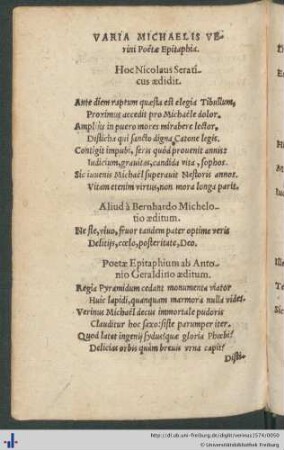 VARIA MICHAELIS VE-
rini Poëtæ Epitaphia.
Hoc Nicolaus Serati-
cus ædidit.
Ante diem raptum quæsta est elegia Tibullum,
Proximus accedit pro Michaële dolor.
Amplius in puero mores mirabere lector,
Disticha qui sancto digna Catone legis.
Contigit impubi, seris quod prouenit annis:
Iudicium, grauitas, candida vita, sophos.
Sic iuuenis Michaël superauit Nestoris annos.
Vitam etenim virtus, non mora longa parit.
Aliud à Bernhardo Michelo-
tio æditum.
Ne fle, viuo, fruor tandem pater optime veris
Delitijs, cœlo, posteritate, Deo.
Poetæ Epitaphium als Anto-
nio Geraldino æditum.
Regia Pyramidum cedant monumenta viator
Huic lapidi, quanquam marmora nulla vides.
Verinus Michaël decus immortale pudoris
Clauditur hoc saxo: siste parumper iter.
Quod latet ingenij sydus, quæ gloria Phœbi?
Delicias orbis quàm breuis vrna capit?
Disti-
http://dl.ub.uni-freiburg.de/diglit/verinus1574/0050
© Universitätsbibliothek Freiburg